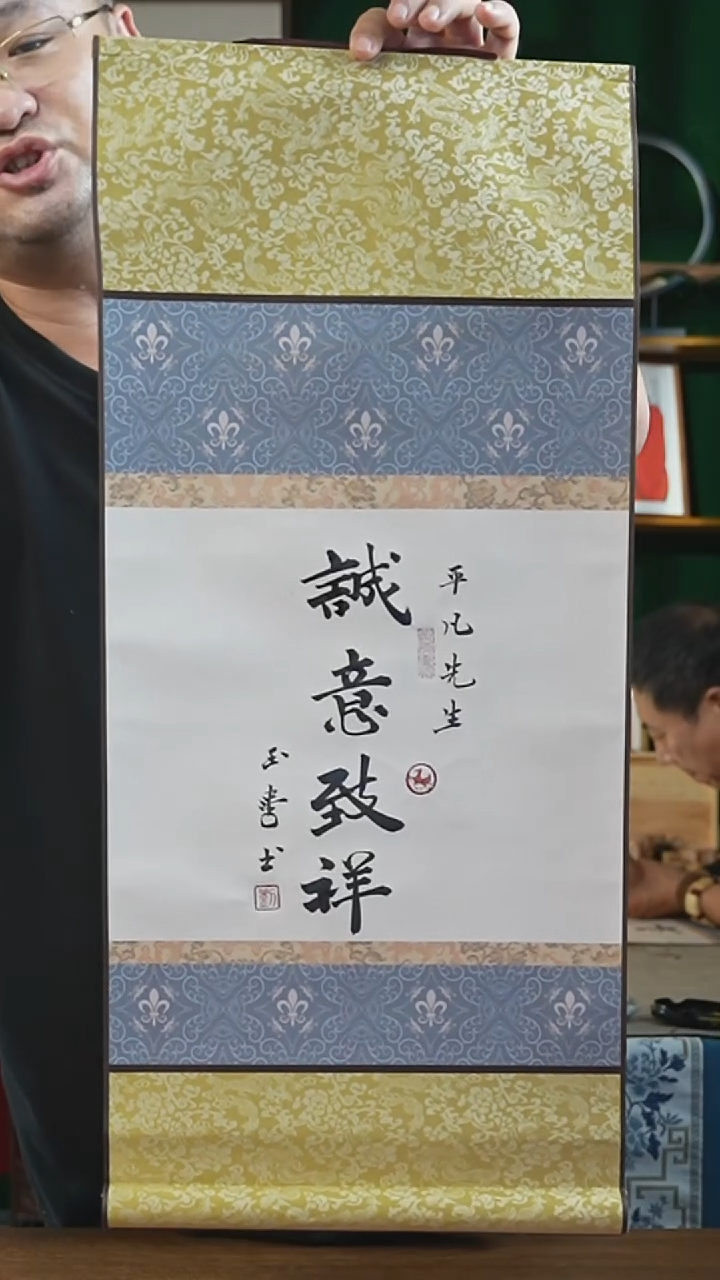 平凡先生
誠意致祥
玉書